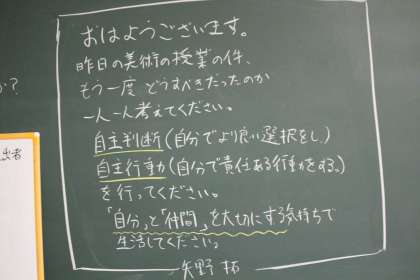 おはようございます。
昨日の美術の授業の件、
もう一度 どうすべきだったのか
一人一人考えてください。
自主判断(自分でより良い選択をし)
自主行動(自分で責任ある行動をする。)
を行ってください。
「自分」と「仲間」を大切にする気持ちで
生活してください。
矢野 拓
か?
出者